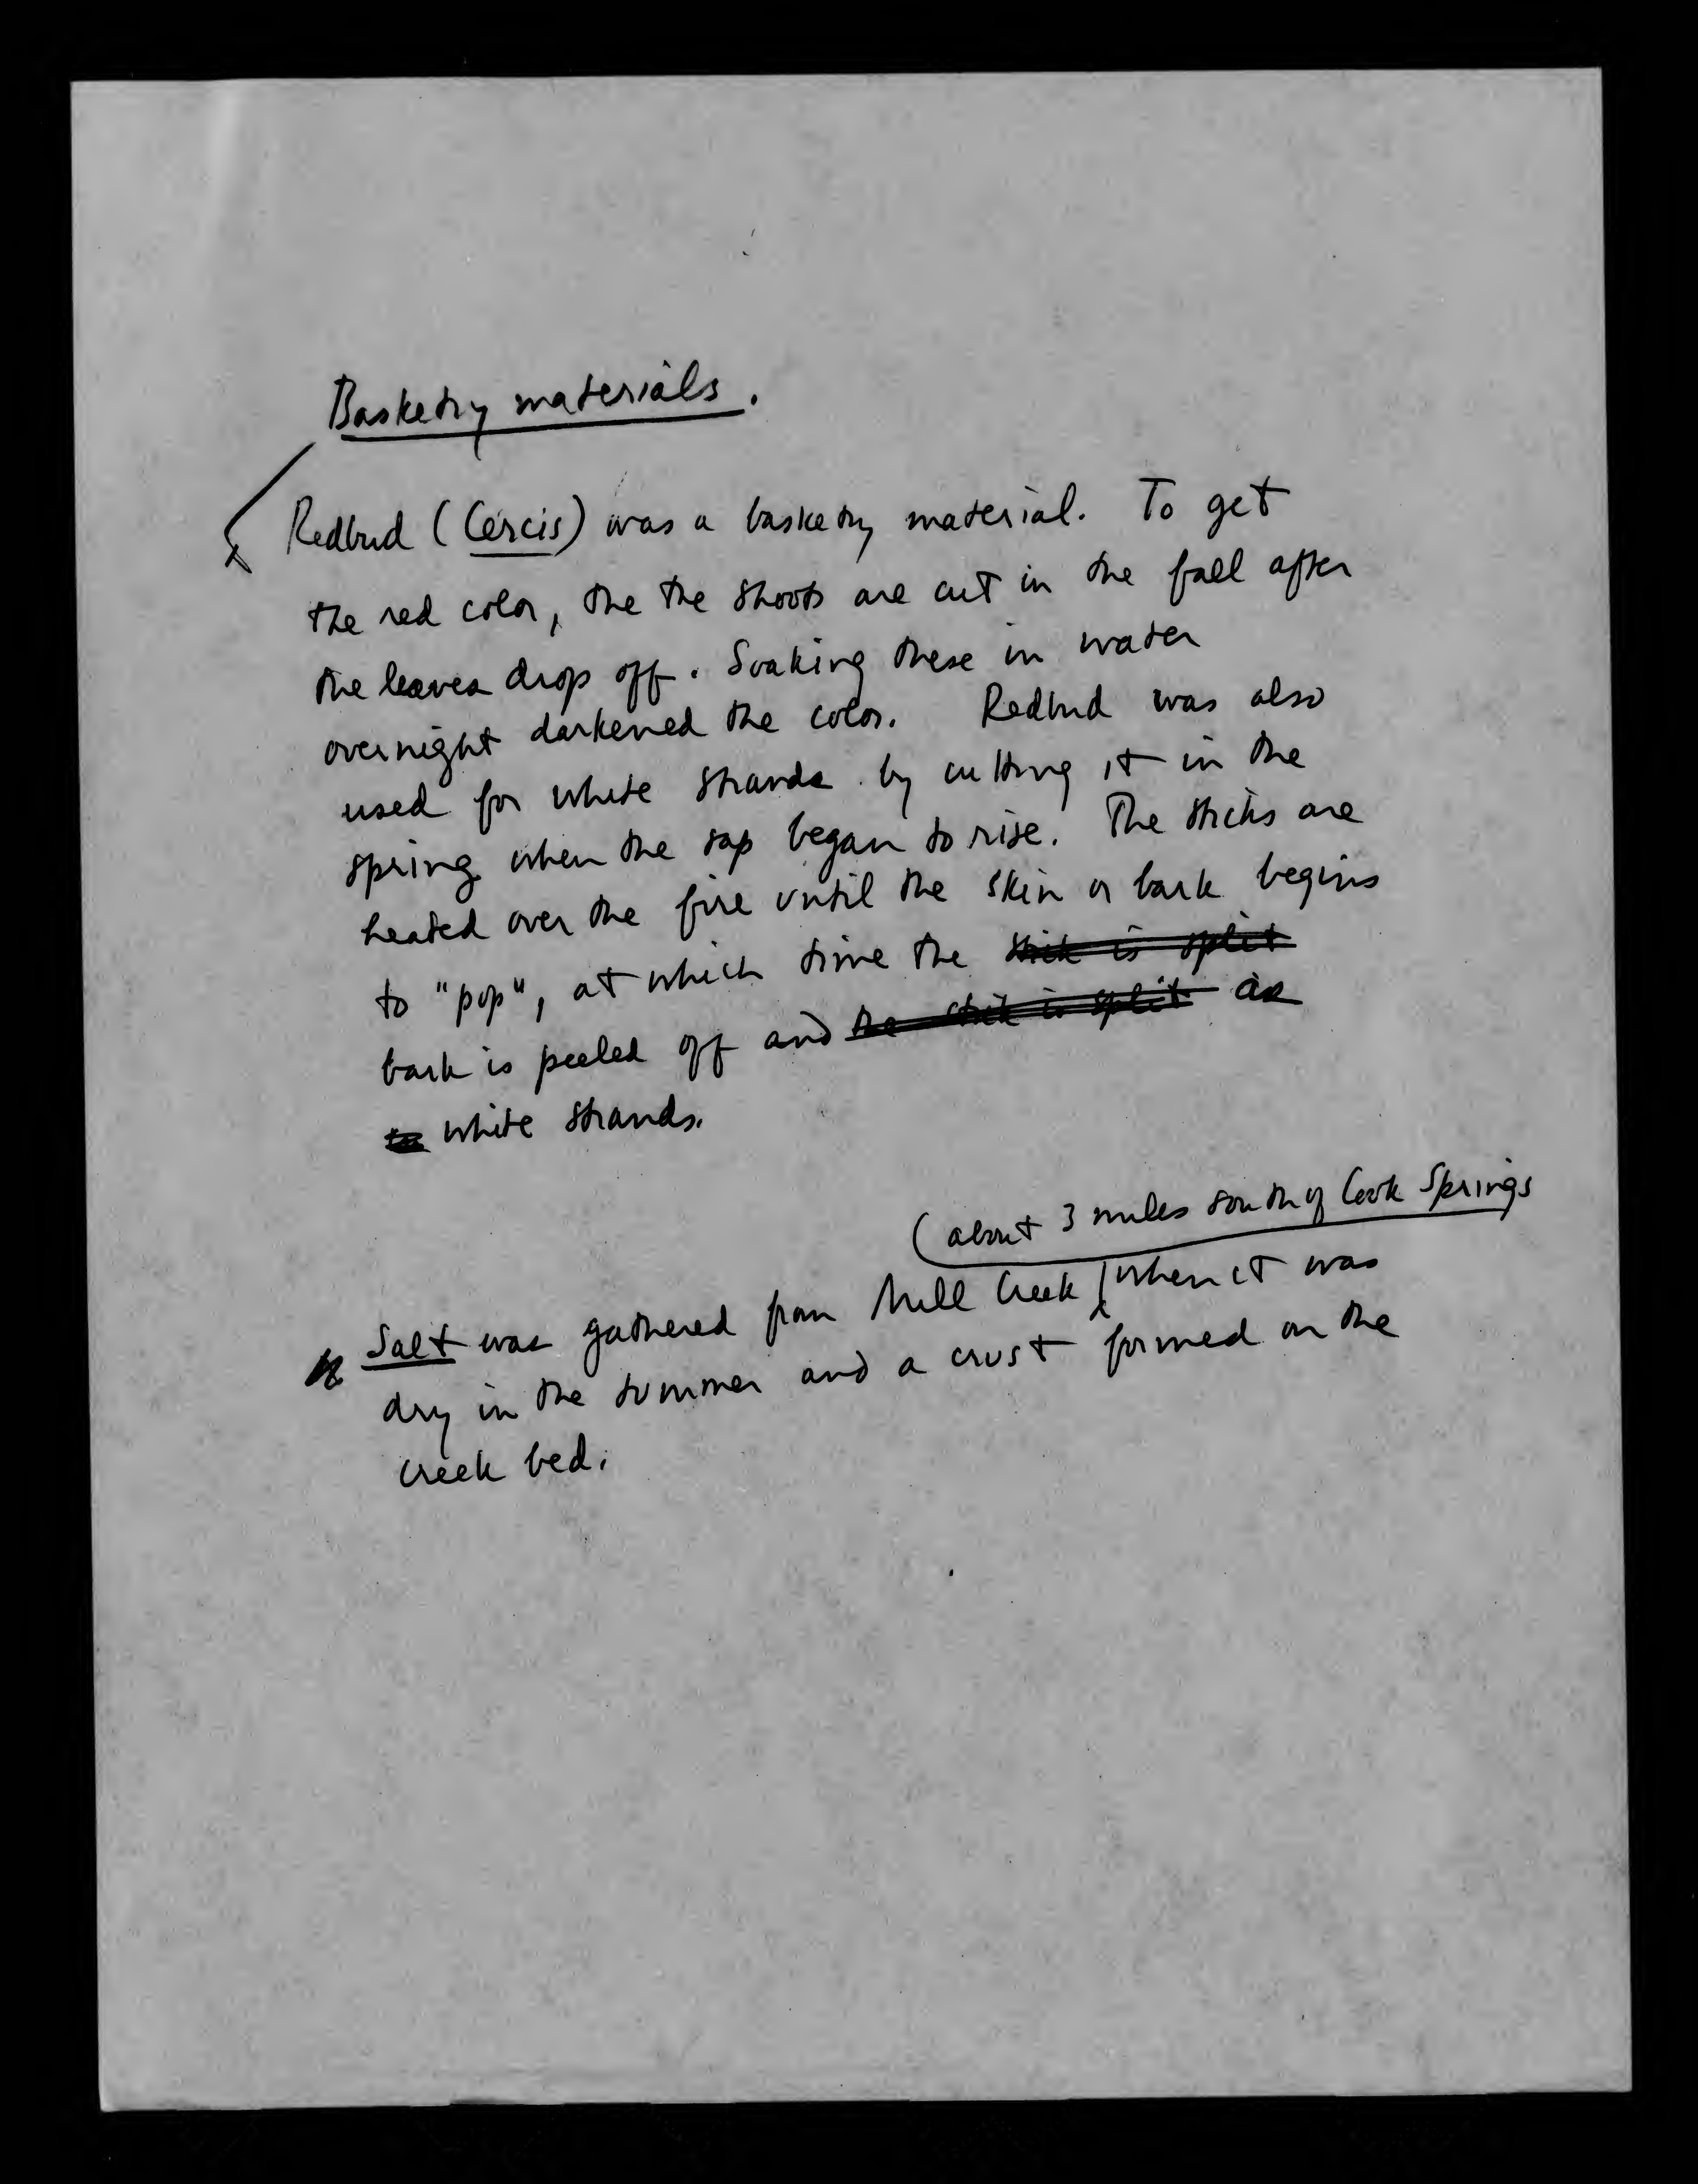 Basketry materials.
Redbud (Cercis) was a basketry material. To get
the red color, the the shoots are cut in the fall after
the leaves drop off. Soaking these in water
overnight darkened the color. Redbud was also
used for white strands by cutting it in the
spring when the sap began to rise. The sticks are
heated over the fire until the skin or bark begins
to "pop", at which time the stick is split
bark is peeled off and the stick is split as
to white strands.
(about 3 miles south of Cook Springs
Salt was gathered from Mill Creek when it was
dry in the summer and a crust formed on the
creek bed.